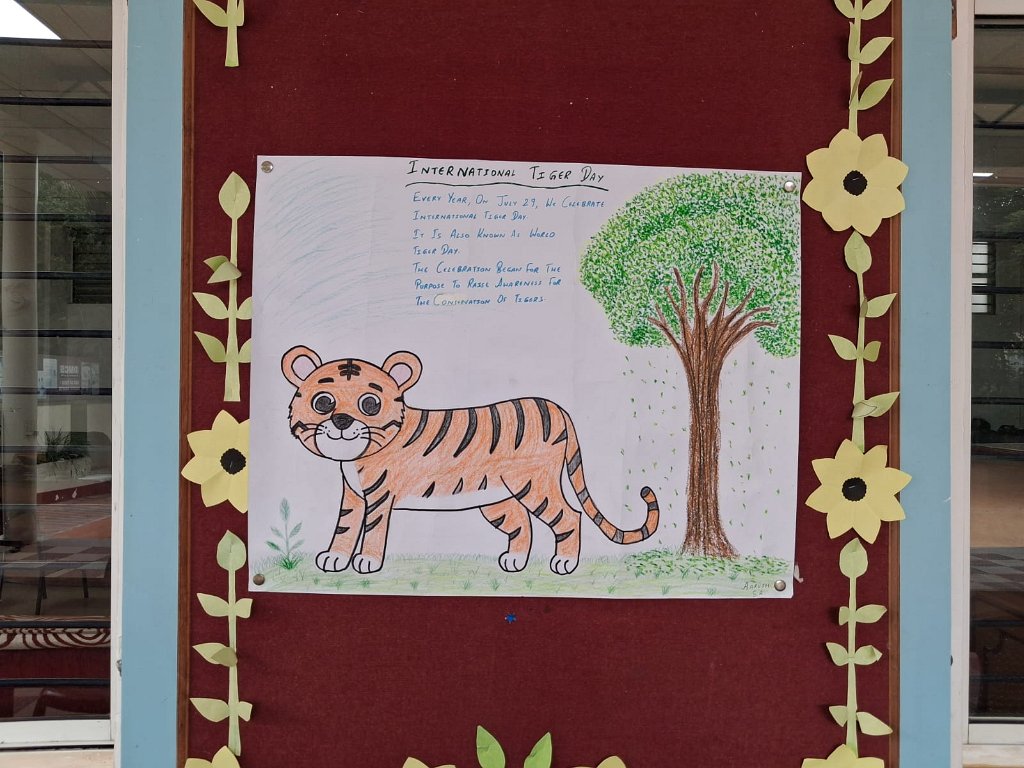 INTERNATIONAL TIGER DAY
EVERY YEAR, ON JULY 29, WE CELEBRATE
INTERNATIONAL TIGER DAY.
IT IS ALSO KNOWN AS WORLD
TIGER DAY.
THE CELEBRATION BEGAN FOR THE
PURPOSE TO RAISE AWARENESS FOR
THE CONSERVATION OF TIGERS.